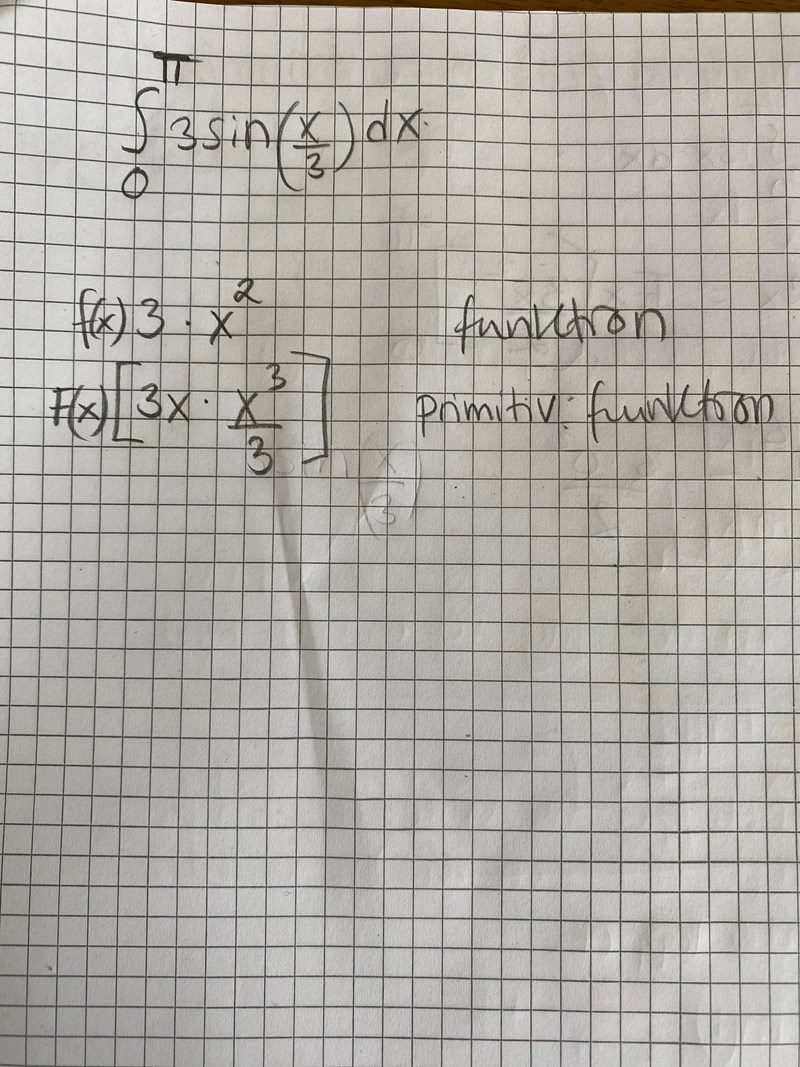 π
∫ 3 sin(x/3) dx.
0
f(x) 3 · x² funktion
F(x) [3x · x³/3] primitiv: funktion